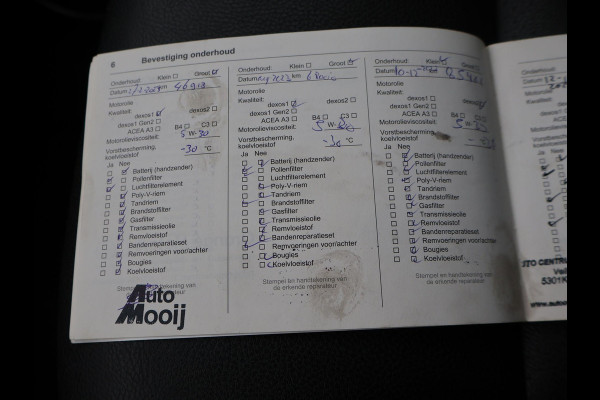 6 Bevestiging onderhoud
Onderhoud: Klein Groot
Datum km
Motorolie
Kwaliteit: dexos1 dexos2
dexos1 Gen2
ACEA A3 B4 C3
Motorolieviscositeit:
5 W-30
Vorstbescherming,
koelvloeistof -30 °C
Ja Nee
Batterij (handzender)
Pollenfilter
Luchtfilterelement
Poly-V-riem
Tandriem
Brandstoffilter
Gasfilter
Transmissieolie
Remvloeistof
Bandenreparatieset
Remvoeringen voor/achter
Bougies
Koelvloeistof
Stempel en handtekening van
de erkende reparateur
Auto
Mooij
Onderhoud: Klein Groot
Datum km
Motorolie
Kwaliteit:
dexos1 dexos2
dexos1 Gen2
ACEA A3 B4 C3
Motorolieviscositeit:
5 W-
Vorstbescherming,
koelvloeistof °C
Ja Nee
Batterij (handzender)
Pollenfilter
Luchtfilterelement
Poly-V-riem
Tandriem
Brandstoffilter
Gasfilter
Transmissieolie
Remvloeistof
Bandenreparatieset
Remvoeringen voor/achter
Bougies
Koelvloeistof
Stempel en handtekening van
de erkende reparateur
Onderhoud: Klein Groot
Datum
Motorolie
Kwaliteit:
dexos1
dexos1 Gen2
ACEA A3 B4
Motorolieviscositeit:
5 W-
Vorstbescherming,
koelvloeistof
Ja Nee
Batterij (handzender)
Pollenfilter
Luchtfilterelement
Poly-V-riem
Tandriem
Brandstoffilter
Gasfilter
Transmissieolie
Remvloeistof
Bandenreparatieset
Remvoeringen voor/achter
Bougies
Koelvloeistof
Stempel en handtekening van
de erkende reparateur
Datum
Ja